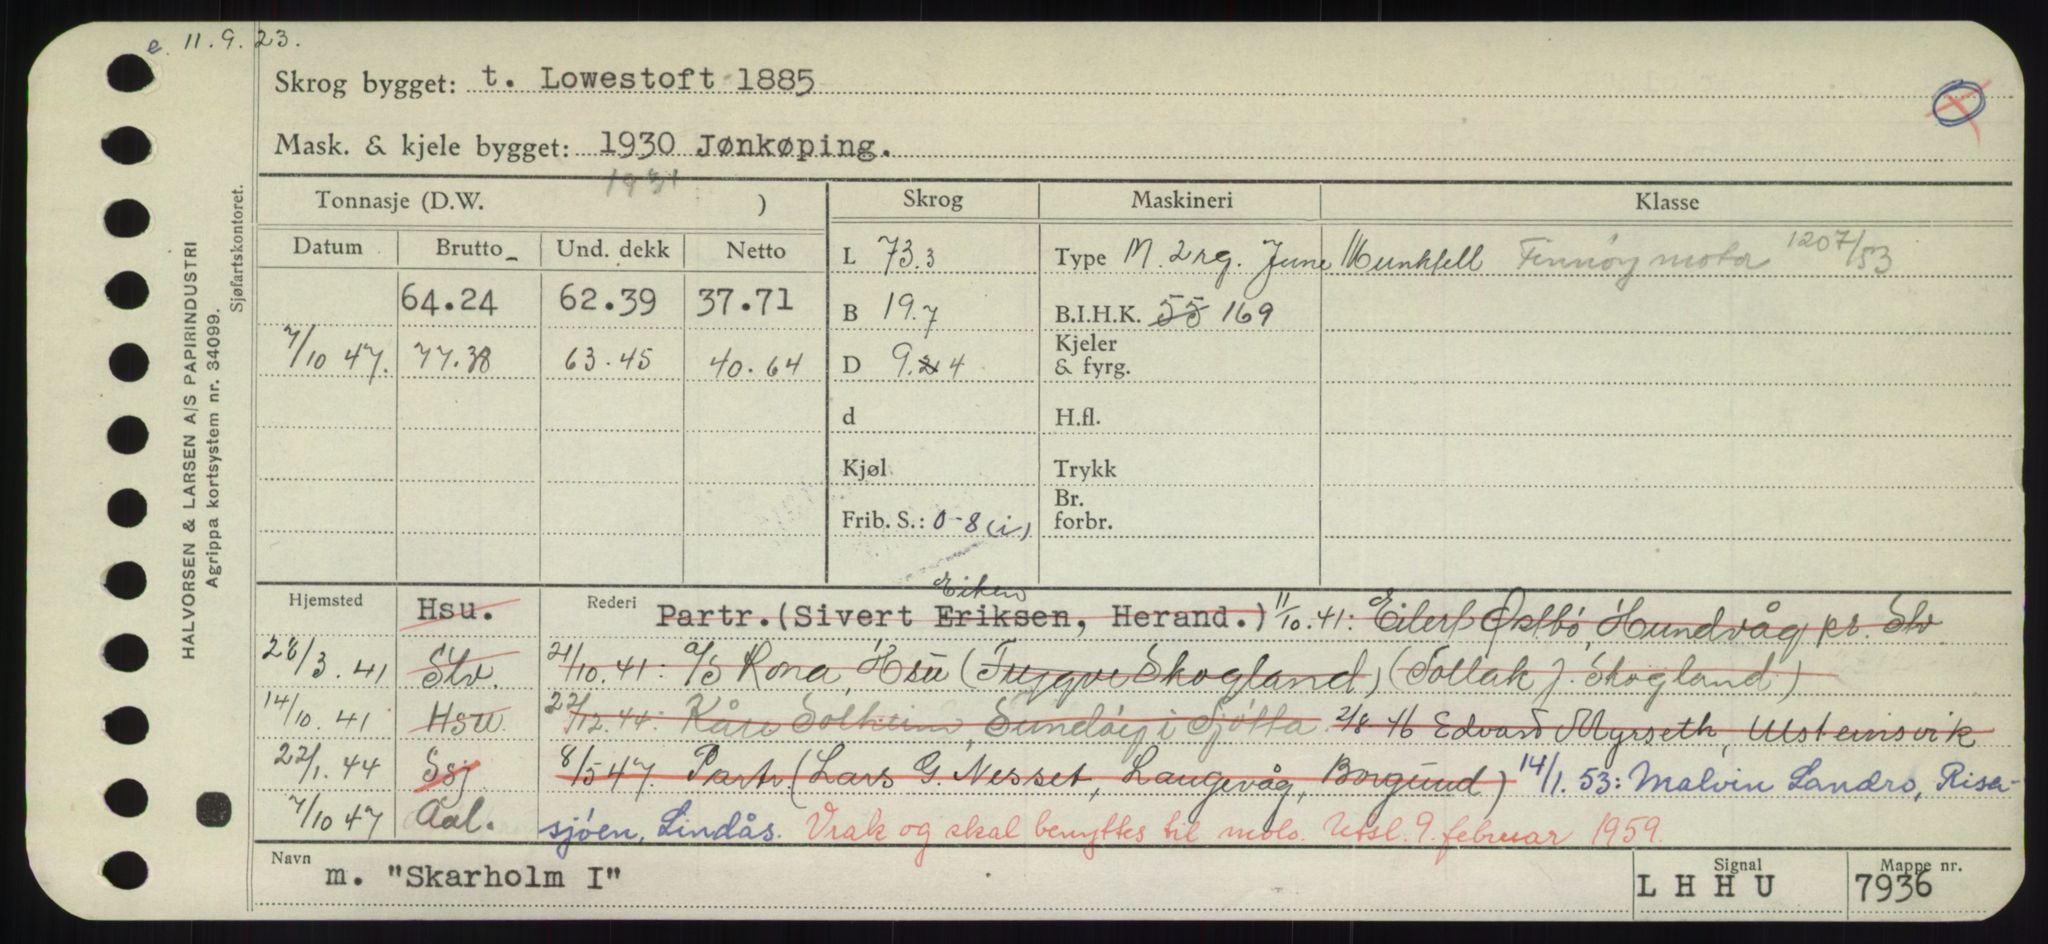 e. 11.9.23.
Skrog bygget: t. Lowestoft 1885
Mask. & kjele bygget: 1930 Jønkøping.
1931
Tonnasje (D.W. ) Skrog Maskineri Klasse
Datum Brutto Und. dekk Netto L 73.3 Type M. 2 rg. June Munktell Finnøy motor 1207/53
64.24 62.39 37.71 B 19.7 B.I.H.K. 55 169
7/10 47. 77.38 63.45 40.64 D 9.4 Kjeler & fyrg.
d H.fl.
Kjøl Trykk
Frib. S.: 0-8 (i) Br. forbr.
Eiken
Hjemsted Hsu. Rederi Partr. (Sivert Eriksen, Herand.) 11/10.41: Eilert Østbø, Hundvåg pr. Stv.
28/3.41 Stv. 21/10.41: A/S Rona, Hsu (Trygve Skogland) (Tollak J. Skogland)
14/10.41 Hsu 22/12.44: Kåre Solheim, Sundøig i Tjøtta 2/8 46 Edvard Myrseth, Ulsteinsvik
22/1.44 Ssj. 8/5 47. Partr. (Lars G. Nesset, Langevåg, Borgund) 14/1.53: Malvin Landro, Risa-
7/10 47 Aal. sjøen, Lindås. Vrak og skal benyttes til molo. Utsl. 9. februar 1959.
Navn m. "Skarholm I" Signal LHHU Mappe nr. 7936
HALVORSEN & LARSEN A/S PAPIRINDUSTRI
Agrippa kortsystem nr. 34099.
Sjøfartskontoret.